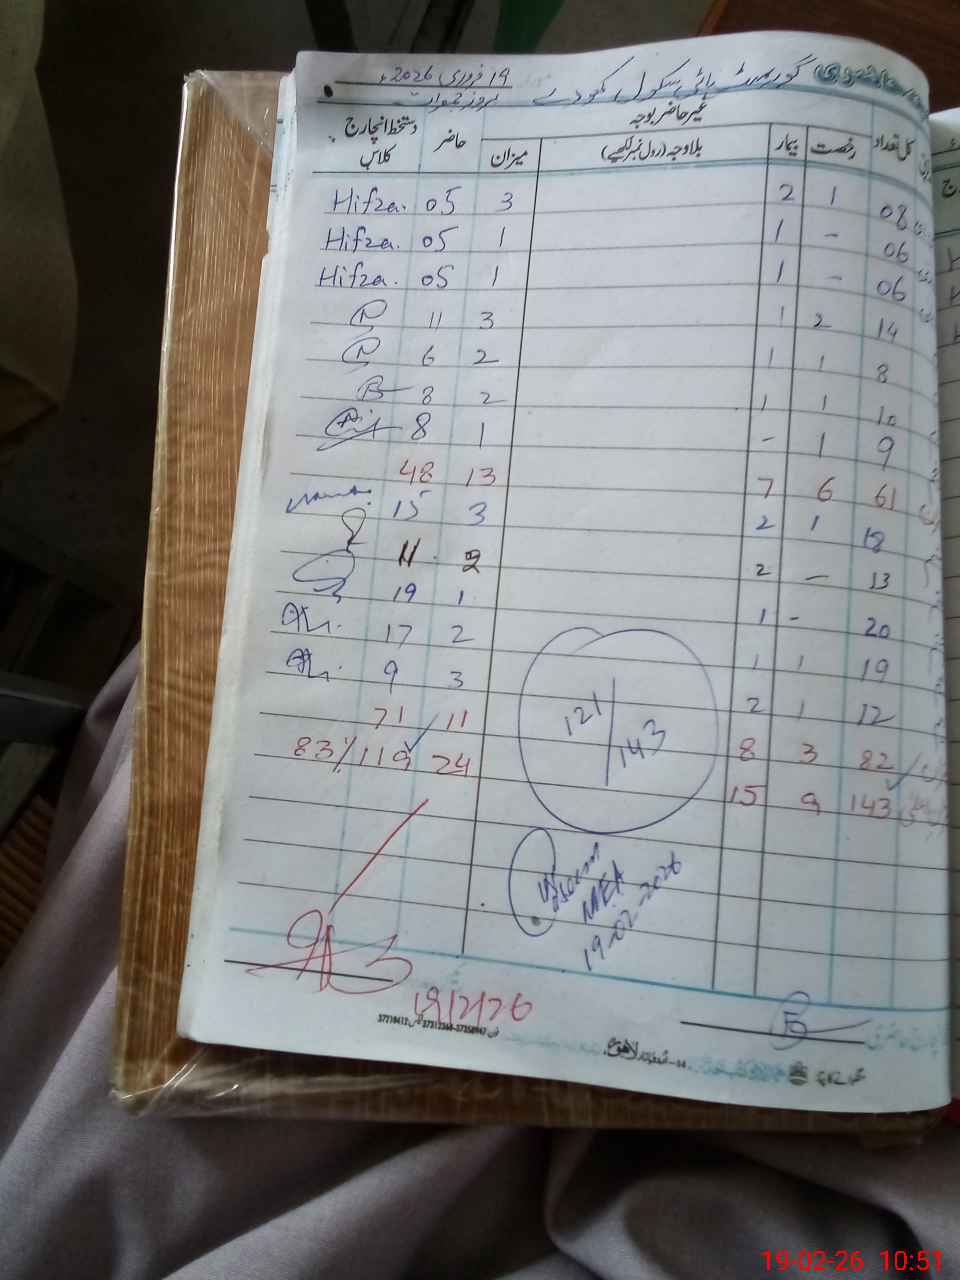 گورنمنٹ ہائی سکول کمودے 19 فروری 2026ء
بروز جمعرات
کل تعداد رخصت بیمار غیر حاضر بوجہ حاضر دستخط انچارج کلاس
بلاوجہ (رول نمبر لکھیے) میزان
08 1 2 3 05 Hifza.
06 - 1 1 05 Hifza.
06 - 1 1 05 Hifza.
14 2 1 3 11
8 1 1 2 6
10 1 1 2 8
9 1 - 1 8
61 6 7 13 48
18 1 2 3 15
13 - 2 2 11
20 - 1 1 19
19 1 1 2 17
12 1 2 3 9
82 3 8 11 71
143 9 15 24 119 83%
121/143
MEA
19-02-2026
19/2/26
37310412 37312368-37350947
لاہور
19-02-26 10:51